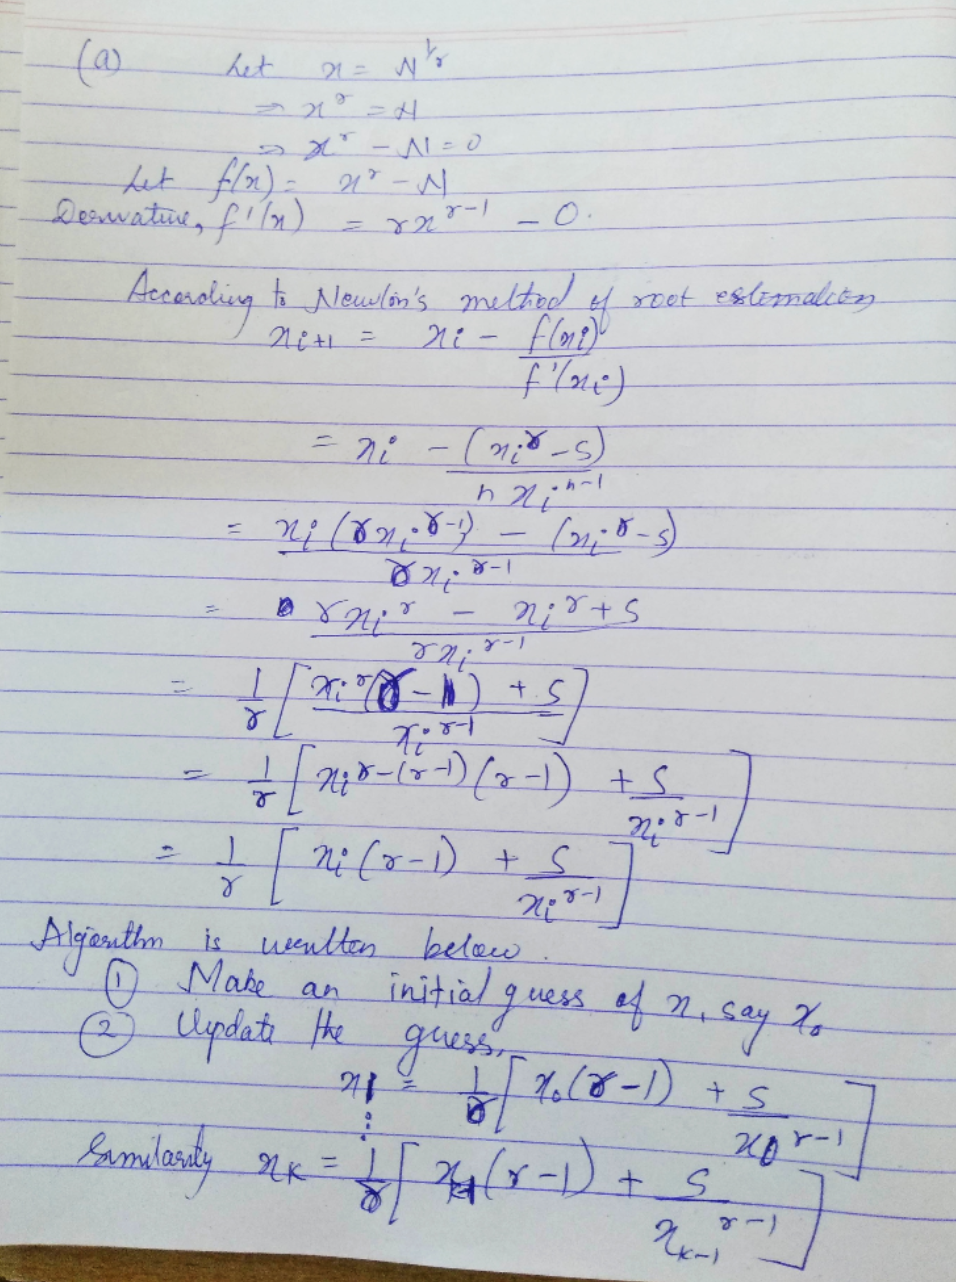 (a) Let x = N^{1/r}
⇒ x^r = N
⇒ x^r - N = 0
Let f(x) = x^r - N
Derivative, f'(x) = rx^{r-1} - 0.
According to Newton's method of root estimation
x_{i+1} = x_i - f(x_i)/f'(x_i)
= x_i - (x_i^r - S)/(n x_i^{n-1})
= (x_i(rx_i^{r-1}) - (x_i^r - S))/(rx_i^{r-1})
= (rx_i^r - x_i^r + S)/(rx_i^{r-1})
= 1/r [(x_i^r(r-1) + S)/(x_i^{r-1})]
= 1/r [x_i^{r-(r-1)}(r-1) + S/(x_i^{r-1})]
= 1/r [x_i(r-1) + S/(x_i^{r-1})]
Algorithm is written below.
① Make an initial guess of x, say x_0
② Update the guess,
x_1 = 1/r [x_0(r-1) + S/(x_0^{r-1})]
⋮
Similarly x_k = 1/r [x_{k-1}(r-1) + S/(x_{k-1}^{r-1})]